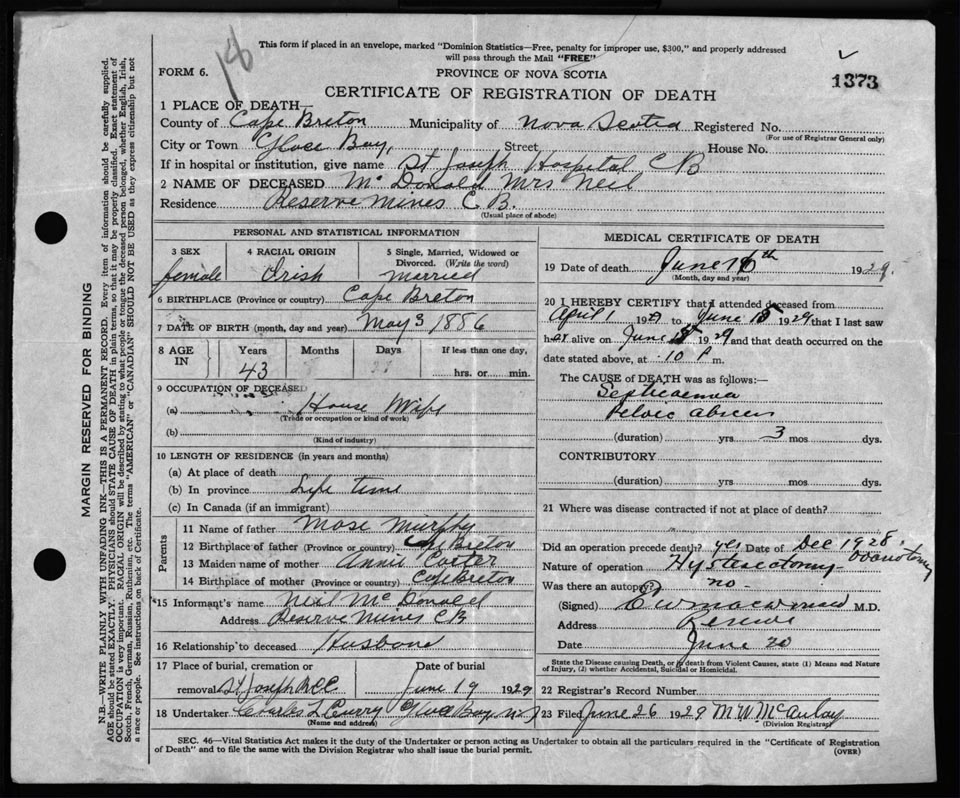 This form if placed in an envelope, marked "Dominion Statistics—Free, penalty for improper use, $300," and properly addressed
will pass through the Mail "FREE"
18
FORM 6.
PROVINCE OF NOVA SCOTIA
1373
CERTIFICATE OF REGISTRATION OF DEATH
1 PLACE OF DEATH—
County of Cape Breton Municipality of Nova Scotia Registered No.
(For use of Registrar General only)
City or Town Glace Bay, Street House No.
If in hospital or institution, give name St Joseph Hospital C B
2 NAME OF DECEASED Mc Donald Mrs Neil
Residence Reserve Mines C B.
(Usual place of abode)
PERSONAL AND STATISTICAL INFORMATION
3 SEX female
4 RACIAL ORIGIN Irish
5 Single, Married, Widowed or Divorced. (Write the word) Married
6 BIRTHPLACE (Province or country) Cape Breton
7 DATE OF BIRTH (month, day and year) May 3 1886
8 AGE IN Years 43 Months Days If less than one day, hrs. or min.
9 OCCUPATION OF DECEASED
(a) House Wife
(Trade or occupation or kind of work)
(b)
(Kind of industry)
10 LENGTH OF RESIDENCE (in years and months)
(a) At place of death
(b) In province Life time
(c) In Canada (if an immigrant)
Parents
11 Name of father Mose Murphy
12 Birthplace of father (Province or country) Breton
13 Maiden name of mother Annie
14 Birthplace of mother (Province or country) Cape Breton
15 Informant's name Neil Mc Donald
Address Reserve Mines CB
16 Relationship to deceased Husband
17 Place of burial, cremation or removal St Joseph
Date of burial June 19 1929
18 Undertaker Charles L Curry Glace Bay N S
(Name and address)
MEDICAL CERTIFICATE OF DEATH
19 Date of death June 16th 1929.
(Month, day and year)
20 I HEREBY CERTIFY that I attended deceased from
April 1 1929 to June 1929 that I last saw
her alive on June 1929 and that death occurred on the
date stated above, at 10 P m.
The CAUSE of DEATH was as follows:—
Septicaemia
Pelvic abscess
(duration) yrs 3 mos dys.
CONTRIBUTORY
(duration) yrs. mos. dys.
21 Where was disease contracted if not at place of death?
Did an operation precede death? yes Date of Dec 1928.
Nature of operation Hysterectomy
Was there an autopsy? no -
(Signed) M.D.
Address Reserve
Date June 20
State the Disease causing Death, or in death from Violent Causes, state (1) Means and Nature
of Injury, (2) whether Accidental, Suicidal or Homicidal.
22 Registrar's Record Number
23 Filed June 26 1929 M W McAulay
(Division Registrar)
SEC. 46—Vital Statistics Act makes it the duty of the Undertaker or person acting as Undertaker to obtain all the particulars required in the "Certificate of Registration
of Death" and to file the same with the Division Registrar who shall issue the burial permit.
(OVER)
MARGIN RESERVED FOR BINDING
N.B.—WRITE PLAINLY WITH UNFADING INK—THIS IS A PERMANENT RECORD. Every item of information should be carefully supplied.
AGE should be stated EXACTLY. PHYSICIANS should STATE CAUSE OF DEATH in plain terms, so that it may be properly classified. Exact statement of
OCCUPATION is very important. RACIAL ORIGIN will be described by stating to what people or tongue the deceased person belonged, whether English, Irish,
Scotch, French, German, Russian, Ruthenian, etc. The terms "AMERICAN" or "CANADIAN" SHOULD NOT BE USED as they express citizenship but not
a race or people. See instructions on back of Certificate.